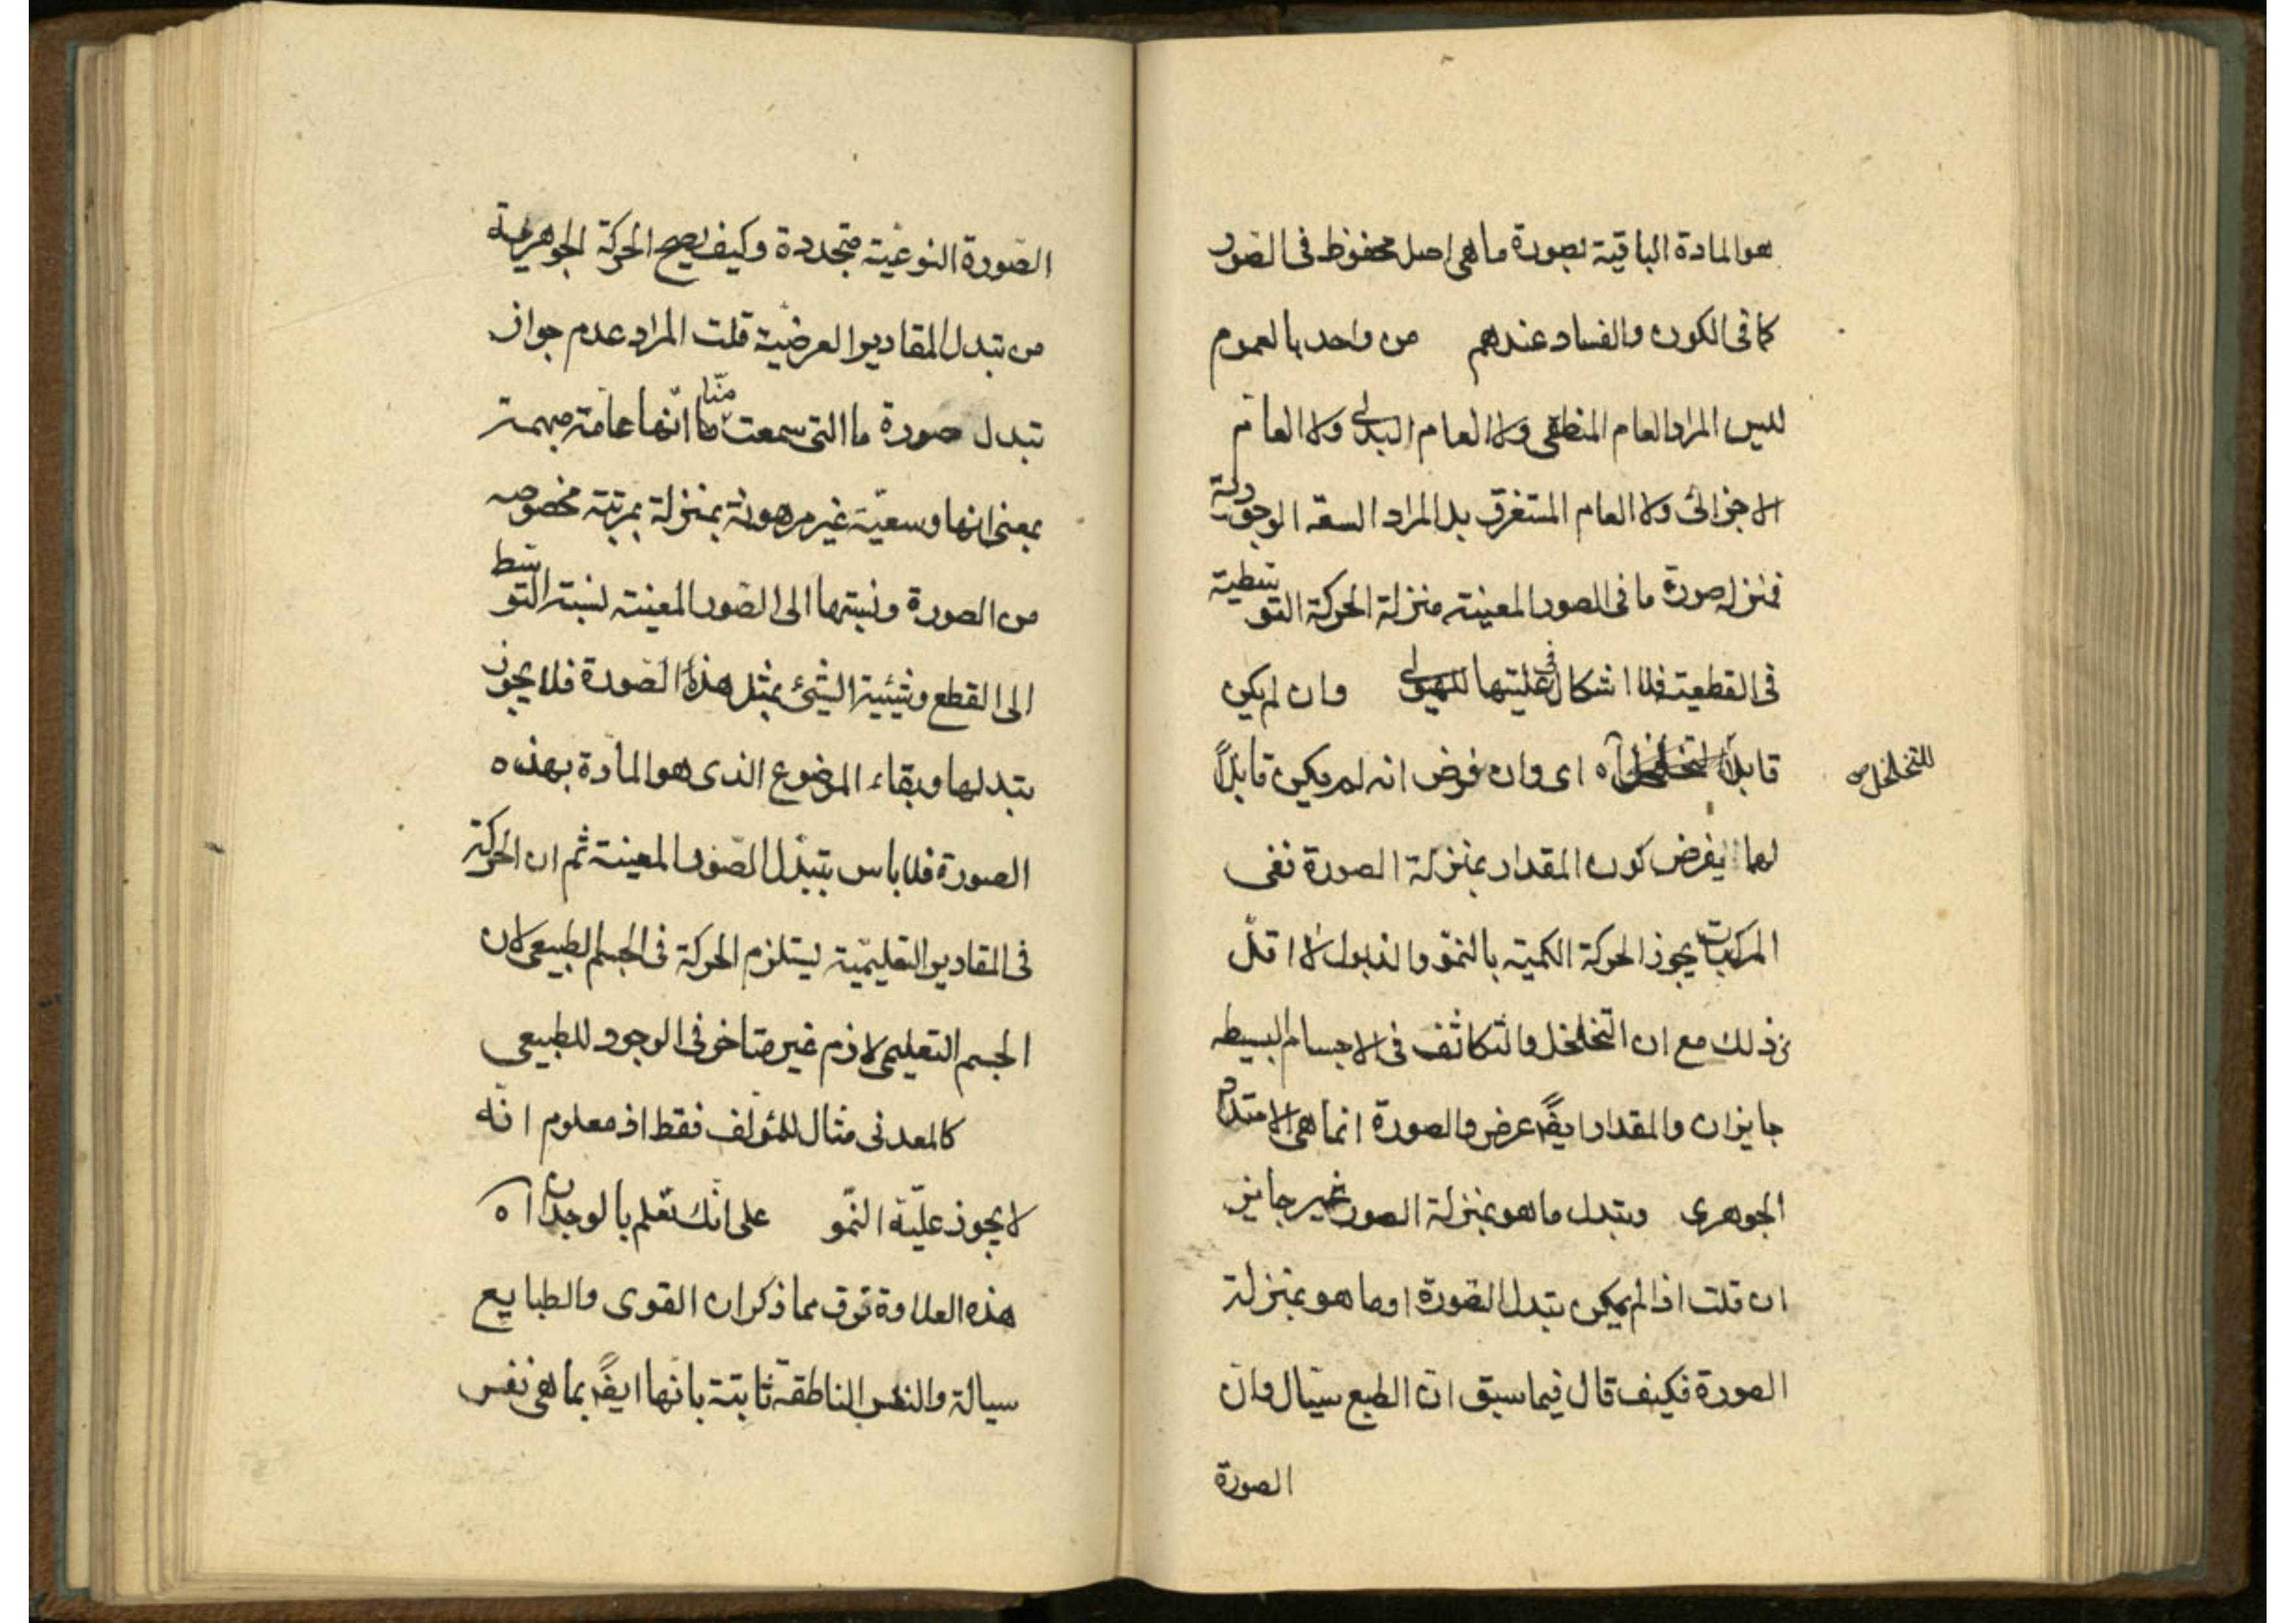 هو المادة الباقية بصورة ما هى اصل محفوظ فى الصور
كما فى الكون والفساد عندهم من واحد بالعموم
ليس المراد العام المنطقى ولا العام البدلى ولا العام
الاجزائى ولا العام المستغرق بل المراد السعة الوجودية
فمنزلة صورة ما فى الصور المعينة منزلة الحركة التوسطية
فى القطعية فلا اشكال فى عليتها للهيولى وان لم يكن
قابلا آه اى وان فرض انه لم يكن قابلاً
للتخلخل صح
لهما يفرض كون المقدار بمنزلة الصورة ففى
المركبات يجوز الحركة الكمية بالنمو والذبول لا اقل
من ذلك مع ان التخلخل والتكاثف فى الاجسام البسيطه
جايزان والمقدار ايضً عرض والصورة انما هى الامتداد
الجوهرى وتبدل ما هو بمنزلة الصور غير جايز
ان قلت اذا لم يمكن تبدل الصورة او ما هو بمنزلة
الصورة فكيف قال فيما سبق ان الطبع سيّال وان
الصورة
الصّورة النوعيّة متجددة وكيف يصح الحركة الجوهرية
من تبدل المقادير العرضيّة قلت المراد عدم جواز
تبدل صورة ما التى سمعت منّا انّها عامة مبهمة
بمعنى انها وسعيّة غير مرهونة بمنزلة بمرتبة مخصوصه
من الصورة ونسبتها الى الصّور المعينة نسبة التوسط
الى القطع وشيئية الشئ بمثل هذه الصورة فلا يجوز
تبدلها وبقاء الموضوع الذى هو المادة بهذه
الصورة فلا باس بتبدّل الصّور المعينة ثم ان الحركة
فى المقادير التعليميّة يستلزم الحركة فى الجسم الطبيعى لان
الجسم التعليمى لازم غير متاخر فى الوجود للطبيعى
كالمعدنى مثال للمؤلف فقط اذ معلوم انّه
لا يجوز عليّة النمّو على انّك تعلم بالوجدان آه
هذه العلاوة ترق مما ذكر ان القوى والطبايع
سيالة والنفس الناطقة ثابتة بانها ايضً بما هى نفس